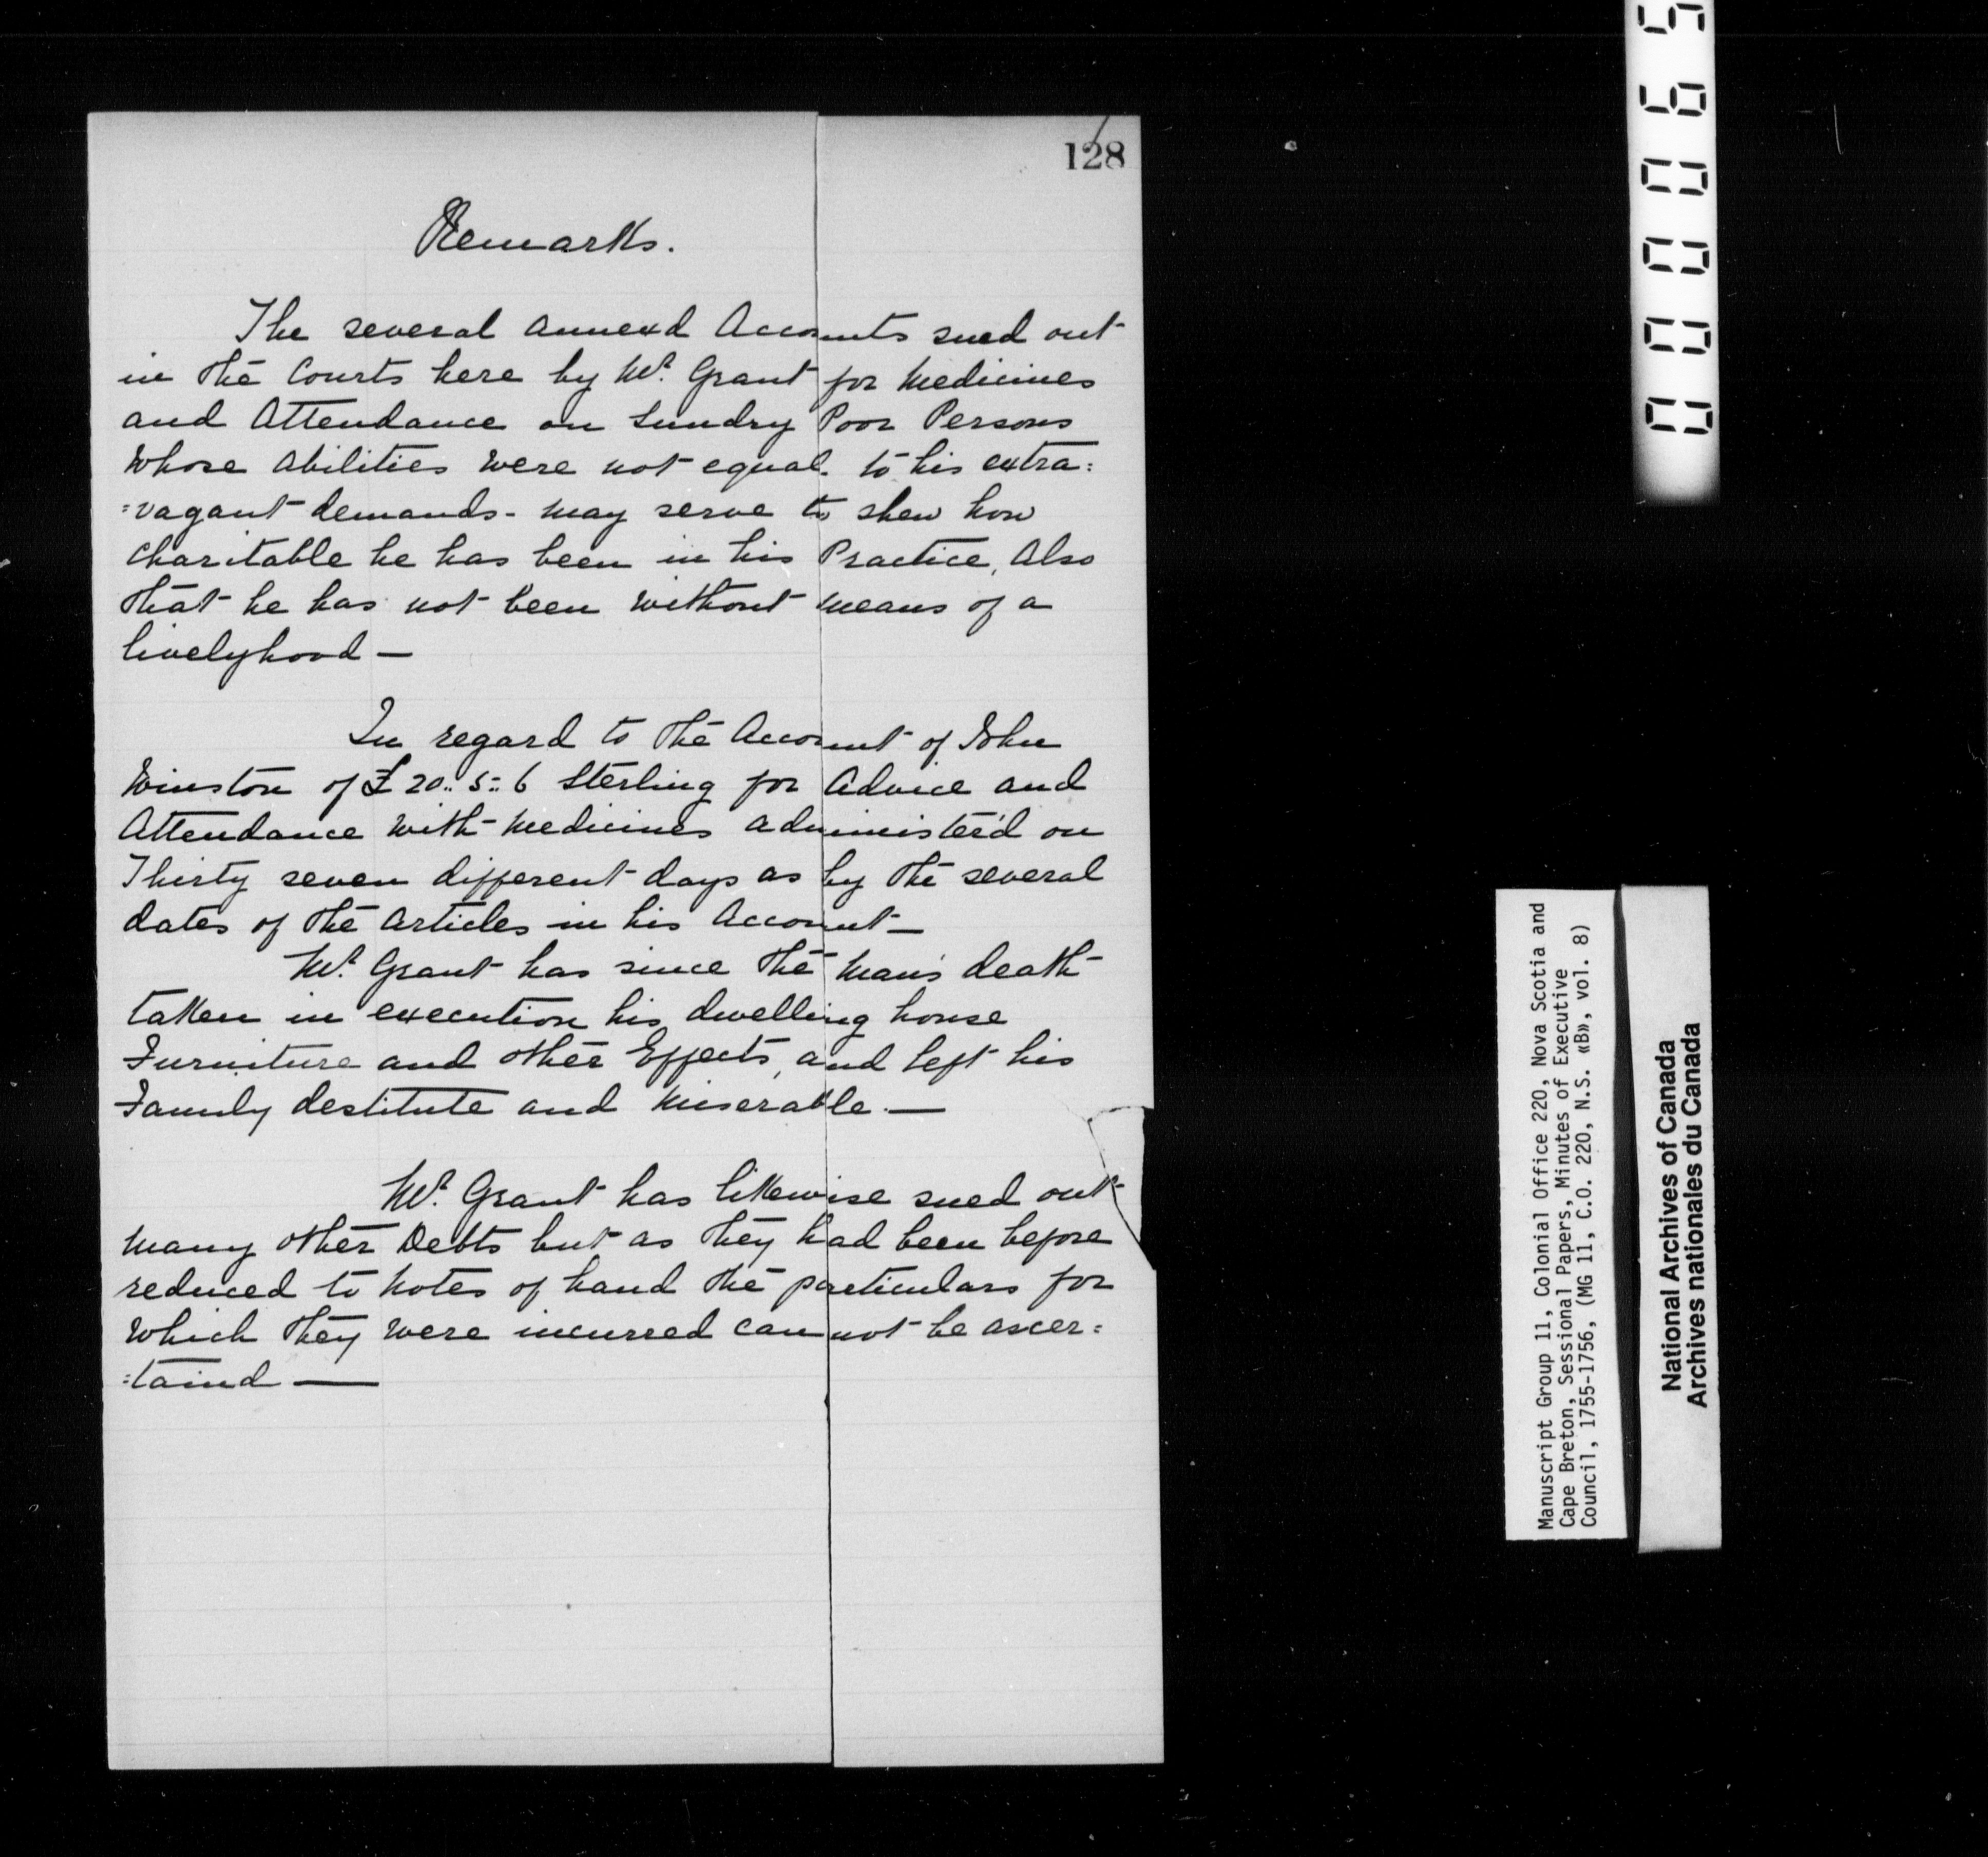 128
Remarks.
The several annexd Accounts sued out
in the Courts here by Mr. Grant for Medicines
and Attendance on Sundry Poor Persons
whose Abilities were not equal to his extra:
:vagant demands - may serve to shew how
charitable he has been in his Practice, Also
that he has not been without means of a
livelyhood —
In regard to the Account of John
Winston of £20.. 5.. 6 Sterling for Advice and
Attendance with Medicines administer'd on
Thirty seven different days as by the several
dates of the Articles in his Account —
Mr. Grant has since the Man's death
taken in execution his dwelling house
Furniture and other Effects, and left his
Family destitute and Miserable. —
Mr. Grant has likewise sued out
Many other Debts but as they had been before
reduced to Notes of hand the particulars for
which they were incurred cannot be ascer:
:taind —
000065
Manuscript Group 11, Colonial Office 220, Nova Scotia and
Cape Breton, Sessional Papers, Minutes of Executive
Council, 1755-1756, (MG 11, C.O. 220, N.S. «B», vol. 8)
National Archives of Canada
Archives nationales du Canada